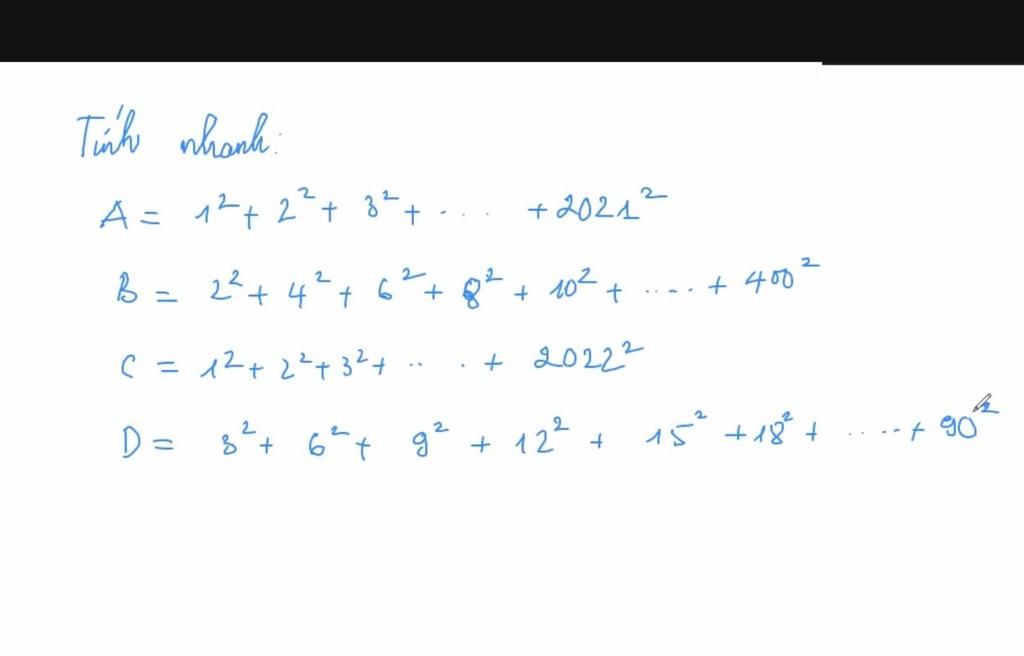 Tính nhanh:
A = 1² + 2² + 3² + ... + 2021²
B = 2² + 4² + 6² + 8² + 10² + ..... + 400²
C = 1² + 2² + 3² + ... + 2022²
D = 3² + 6² + 9² + 12² + 15² + 18² + ..... + 90²